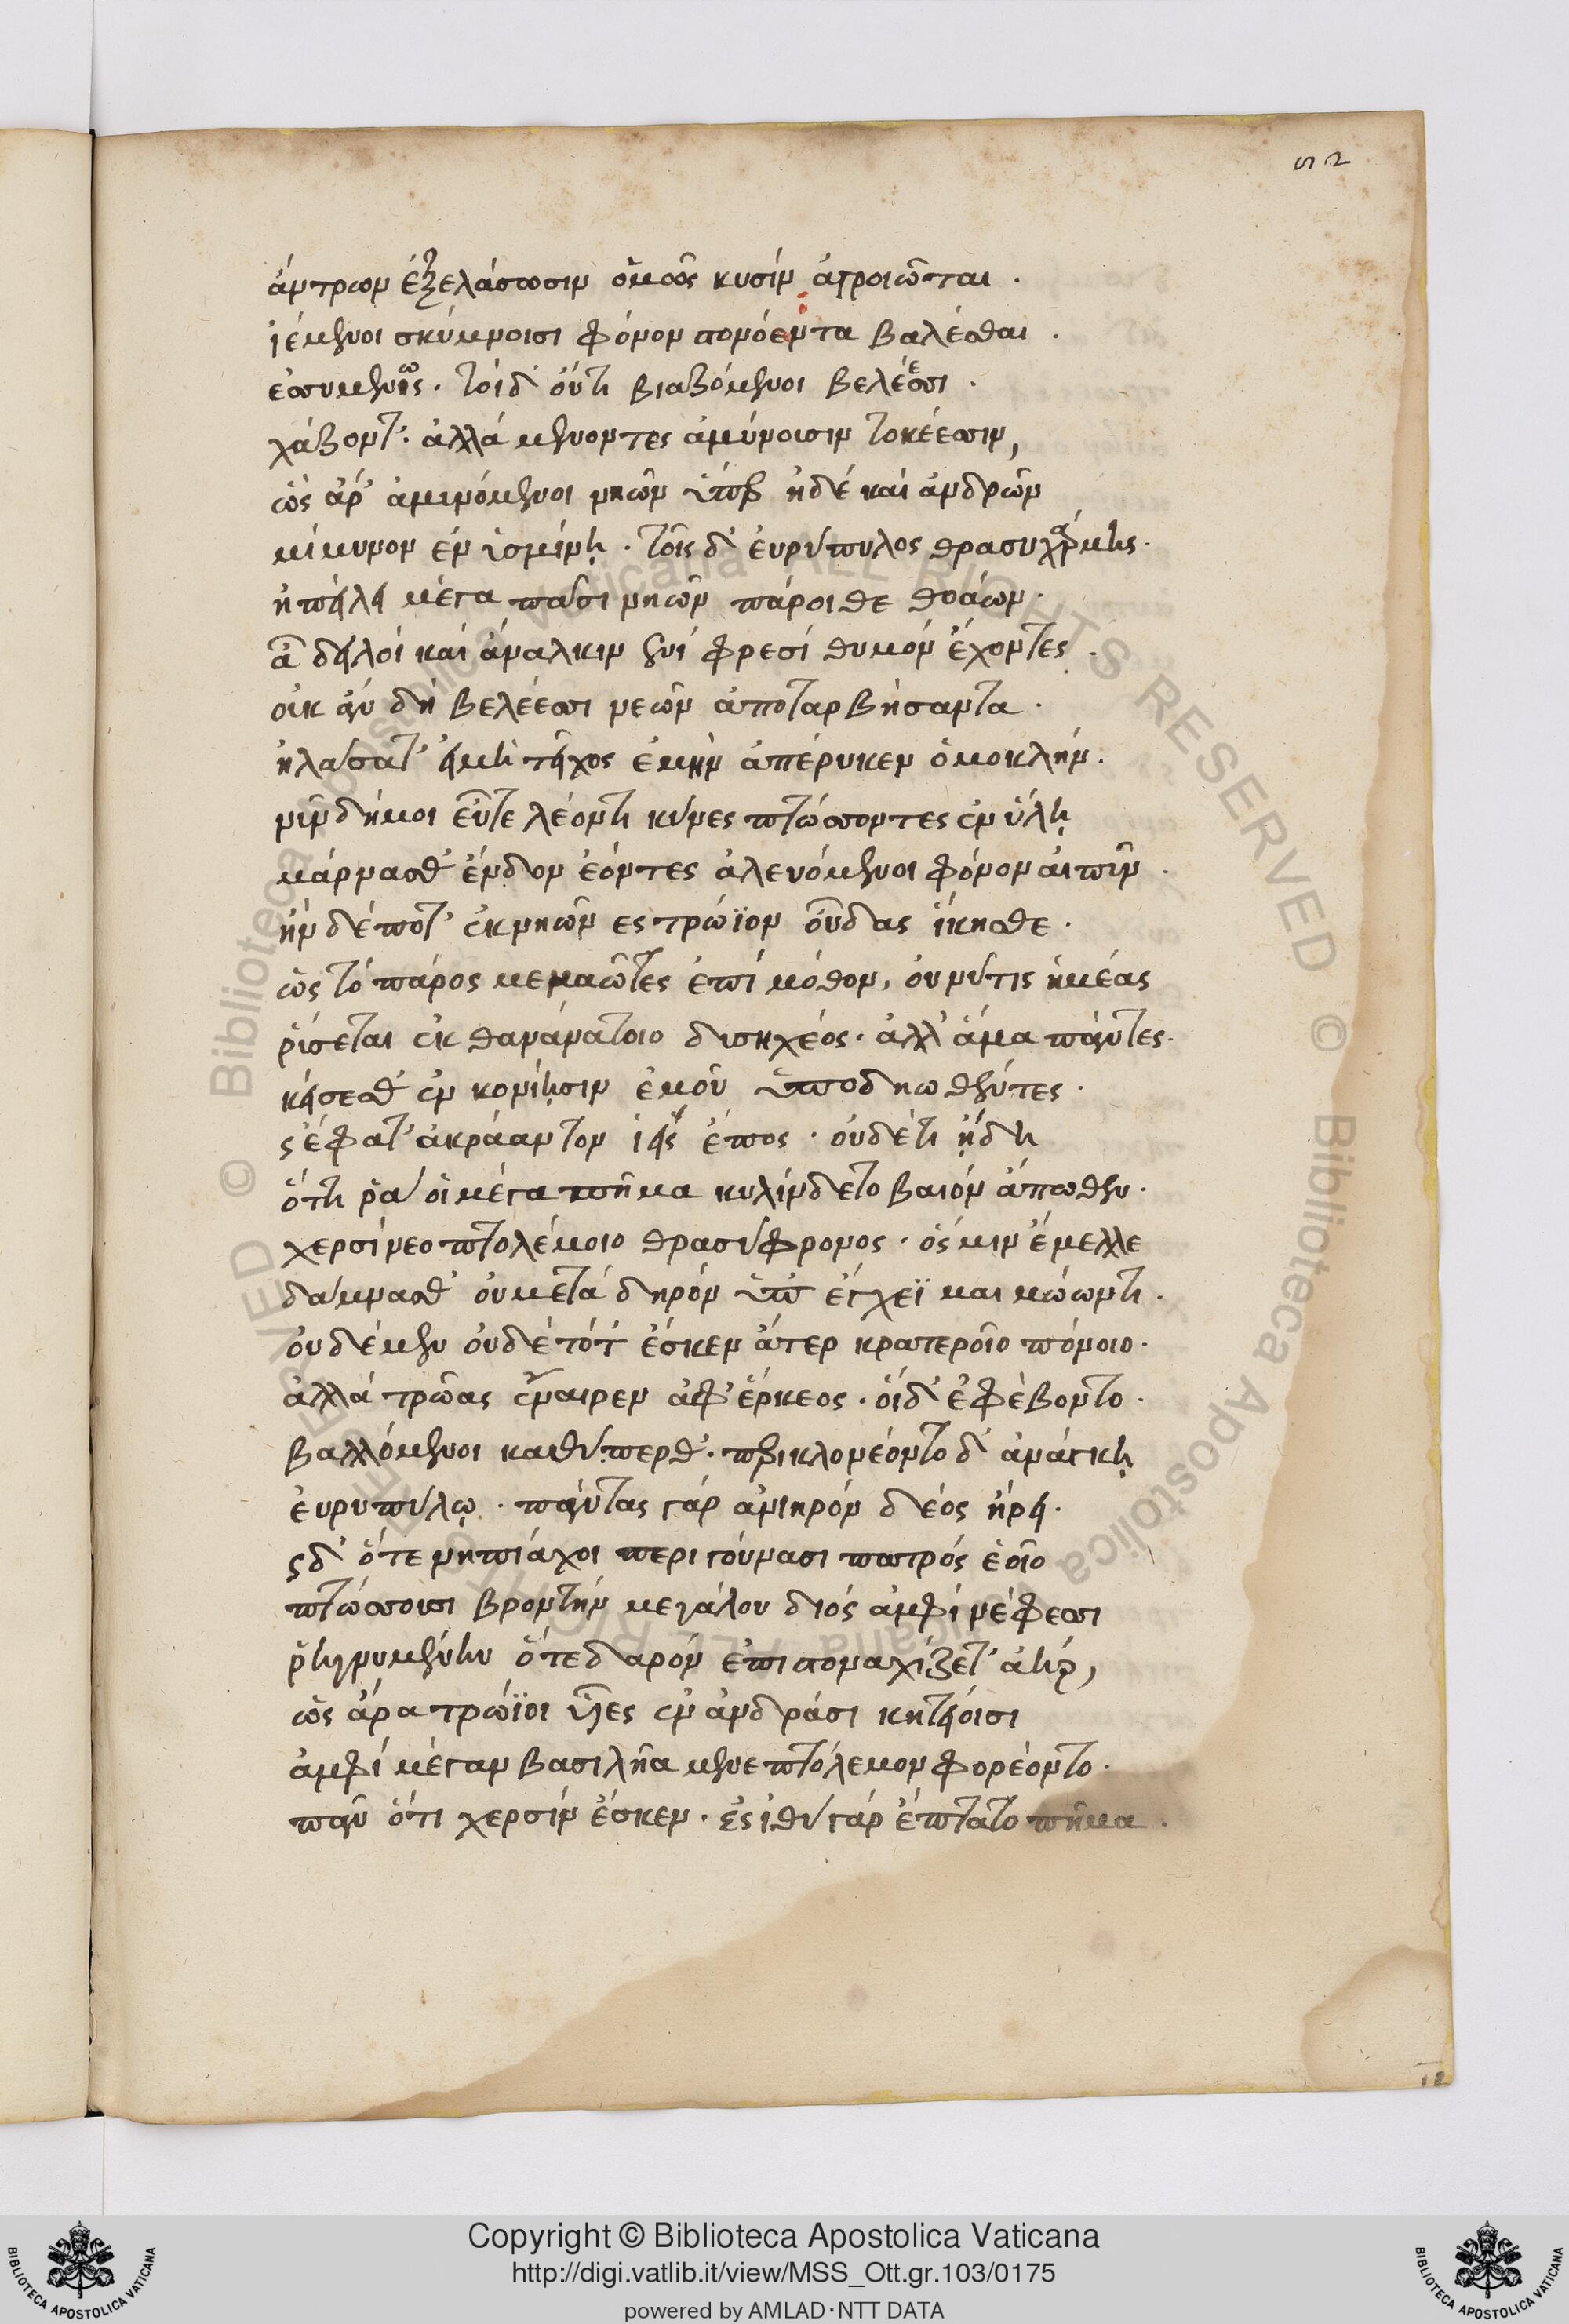 52
ἄντρων ἐξελάσωσιν ὁμῶς κυσὶν ἀγροιῶται.
ἱέμενοι σκύμνοισι φόνον στονόεντα βαλέσθαι.
ἐσσυμένως. τοὶ δ' οὔτι βιαζόμενοι βελέεσσι.
χάζοντ'. ἀλλὰ μένοντες ἀμύνοισιν τοκέεσσιν,
ὣς ἄρ' ἀμυνόμενοι νηῶν ὕπερ ἠδὲ καὶ ἀνδρῶν
μίμνον ἐν ὑσμίνῃ. τοῖς δ' εὐρύπυλος θρασυχάρμης.
ἠπείλει μέγα πᾶσι νηῶν πάροιθε βοάων.
ἆ δειλοὶ καὶ ἄναλκιν ἐνὶ φρεσὶ θυμὸν ἔχοντες.
οὐκ ἂν δὴ βελέεσσι νεῶν ἀποταρβήσαντα.
ἠλάσατ' εἰ μὴ τεῖχος ἐμὴν ἀπέρυκεν ὁμοκλήν.
νῦν δή μοι εὖτε λέοντι κύνες πτώσσοντες ἐν ὕλῃ
μάρνασθ' ἔνδον ἐόντες ἀλευόμενοι φόνον αἰπύν.
ἢν δέ ποτ' ἐκ νηῶν ἐς τρώϊον οὖδας ἵκησθε.
ὡς τὸ πάρος μεμαῶτες ἐπὶ μόθον, οὔ νύ τις ἡμέας
ῥύσεται ἐκ θανάτοιο δυσηχέος. ἀλλ' ἅμα πάντες.
κείσεσθ' ἐν κονίῃσιν ἐμοῦ ὕπο δῃωθέντες.
ὣς ἔφατ' ἀκράαντον ἱεὶς ἔπος. οὐδέ τι ᾔδη
ὅττι ῥά οἱ μέγα πῆμα κυλίνδετο βαιὸν ἄπωθεν.
χερσὶ νεοπτολέμοιο θρασύφρονος. ὅς μιν ἔμελλε
δάμνασθ' οὐ μετὰ δηρὸν ὑπ' ἔγχεϊ μαιμώωντι.
οὐδὲ μὲν οὐδὲ τότ' ἔσκεν ἄτερ κρατεροῖο πόνοιο.
ἀλλὰ τρῶας ἔναιρεν ἀφ' ἕρκεος. οἱ δ' ἐφέβοντο.
βαλλόμενοι καθύπερθ'. περικλονέοντο δ' ἀνάγκῃ
εὐρυπύλῳ. πάντας γὰρ ἀνιηρὸν δέος ᾕρει.
ὡς δ' ὅτε νηπίαχοι περὶ γούνασι πατρὸς ἑοῖο
πτώσσουσι βροντὴν μεγάλου διὸς ἀμφὶ νέφεσσι
ῥηγνυμένην ὅτε δαρὸν ἐπιστοναχίζετ' ἀήρ,
ὣς ἄρα τρώϊοι υἷες ἐν ἀνδράσι κητείοισι
ἀμφὶ μέγαν βασιλῆα νεοπτόλεμον φορέοντο.
πᾶν ὅτι χερσὶν ἔσκεν. ἐς ἰθὺ γὰρ ἔπτατο πῆμα.
Copyright © Biblioteca Apostolica Vaticana
http://digi.vatlib.it/view/MSS_Ott.gr.103/0175
powered by AMLAD·NTT DATA